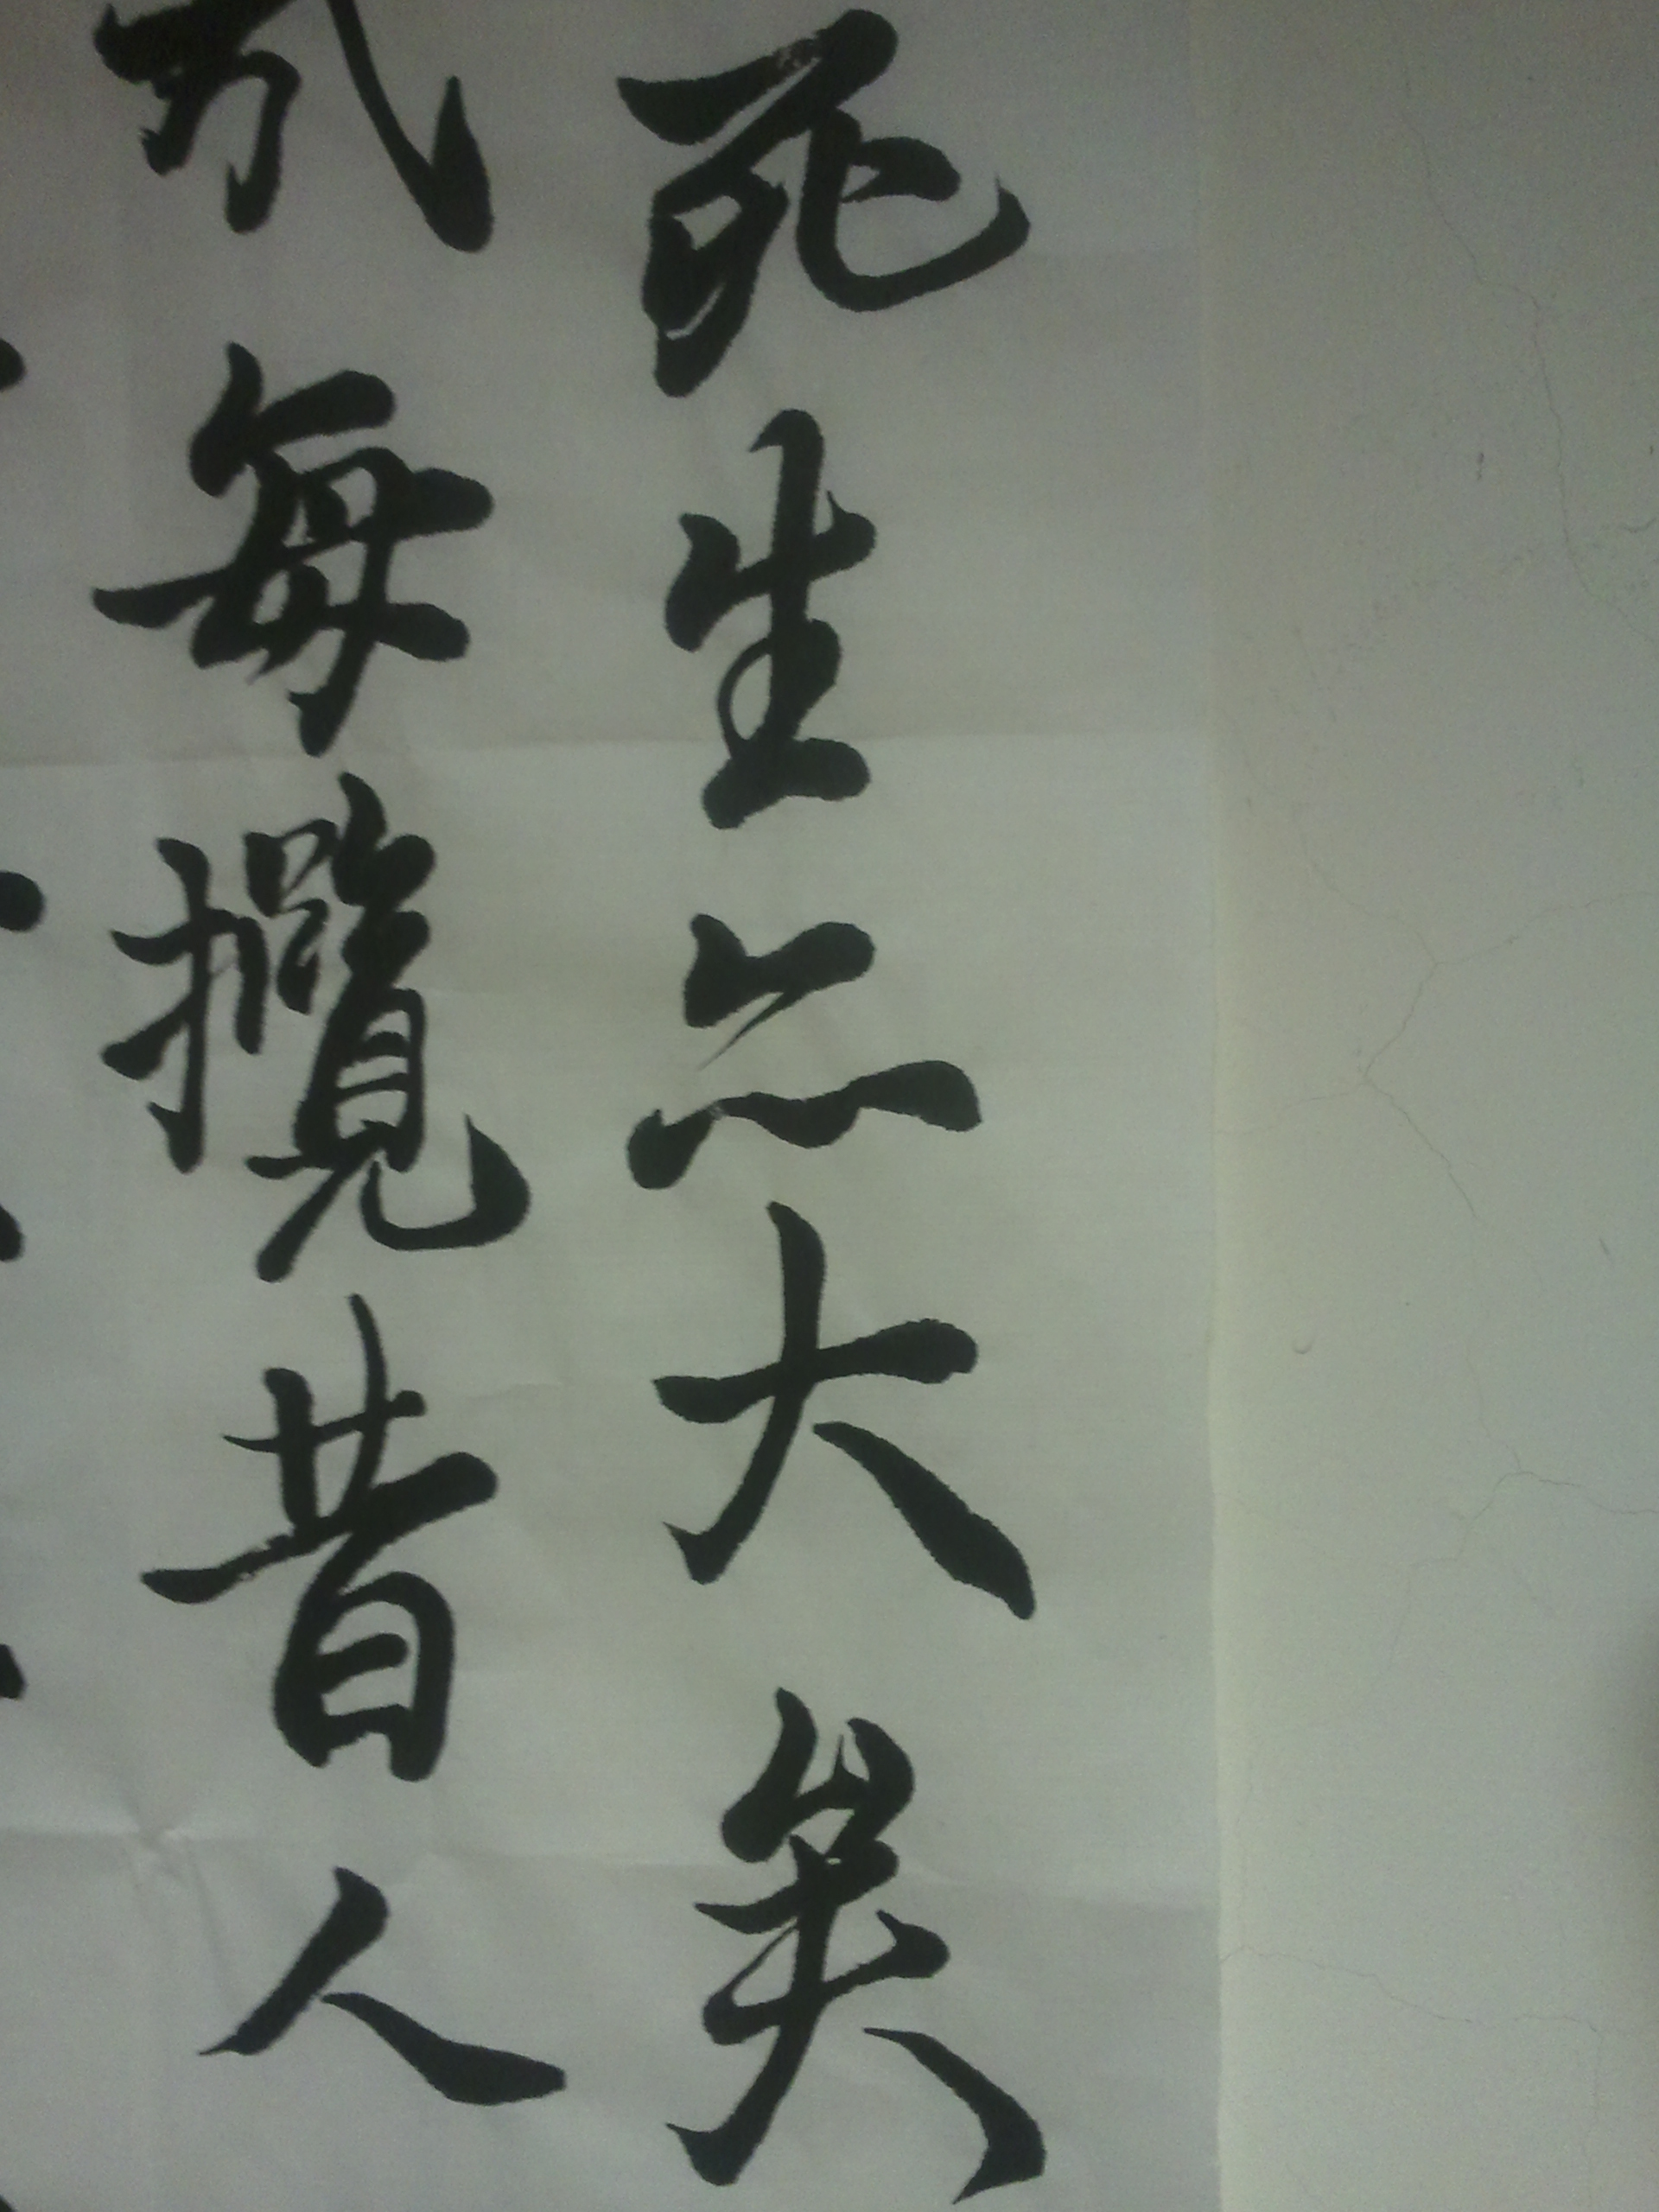 死生亦大矣
每攬昔人